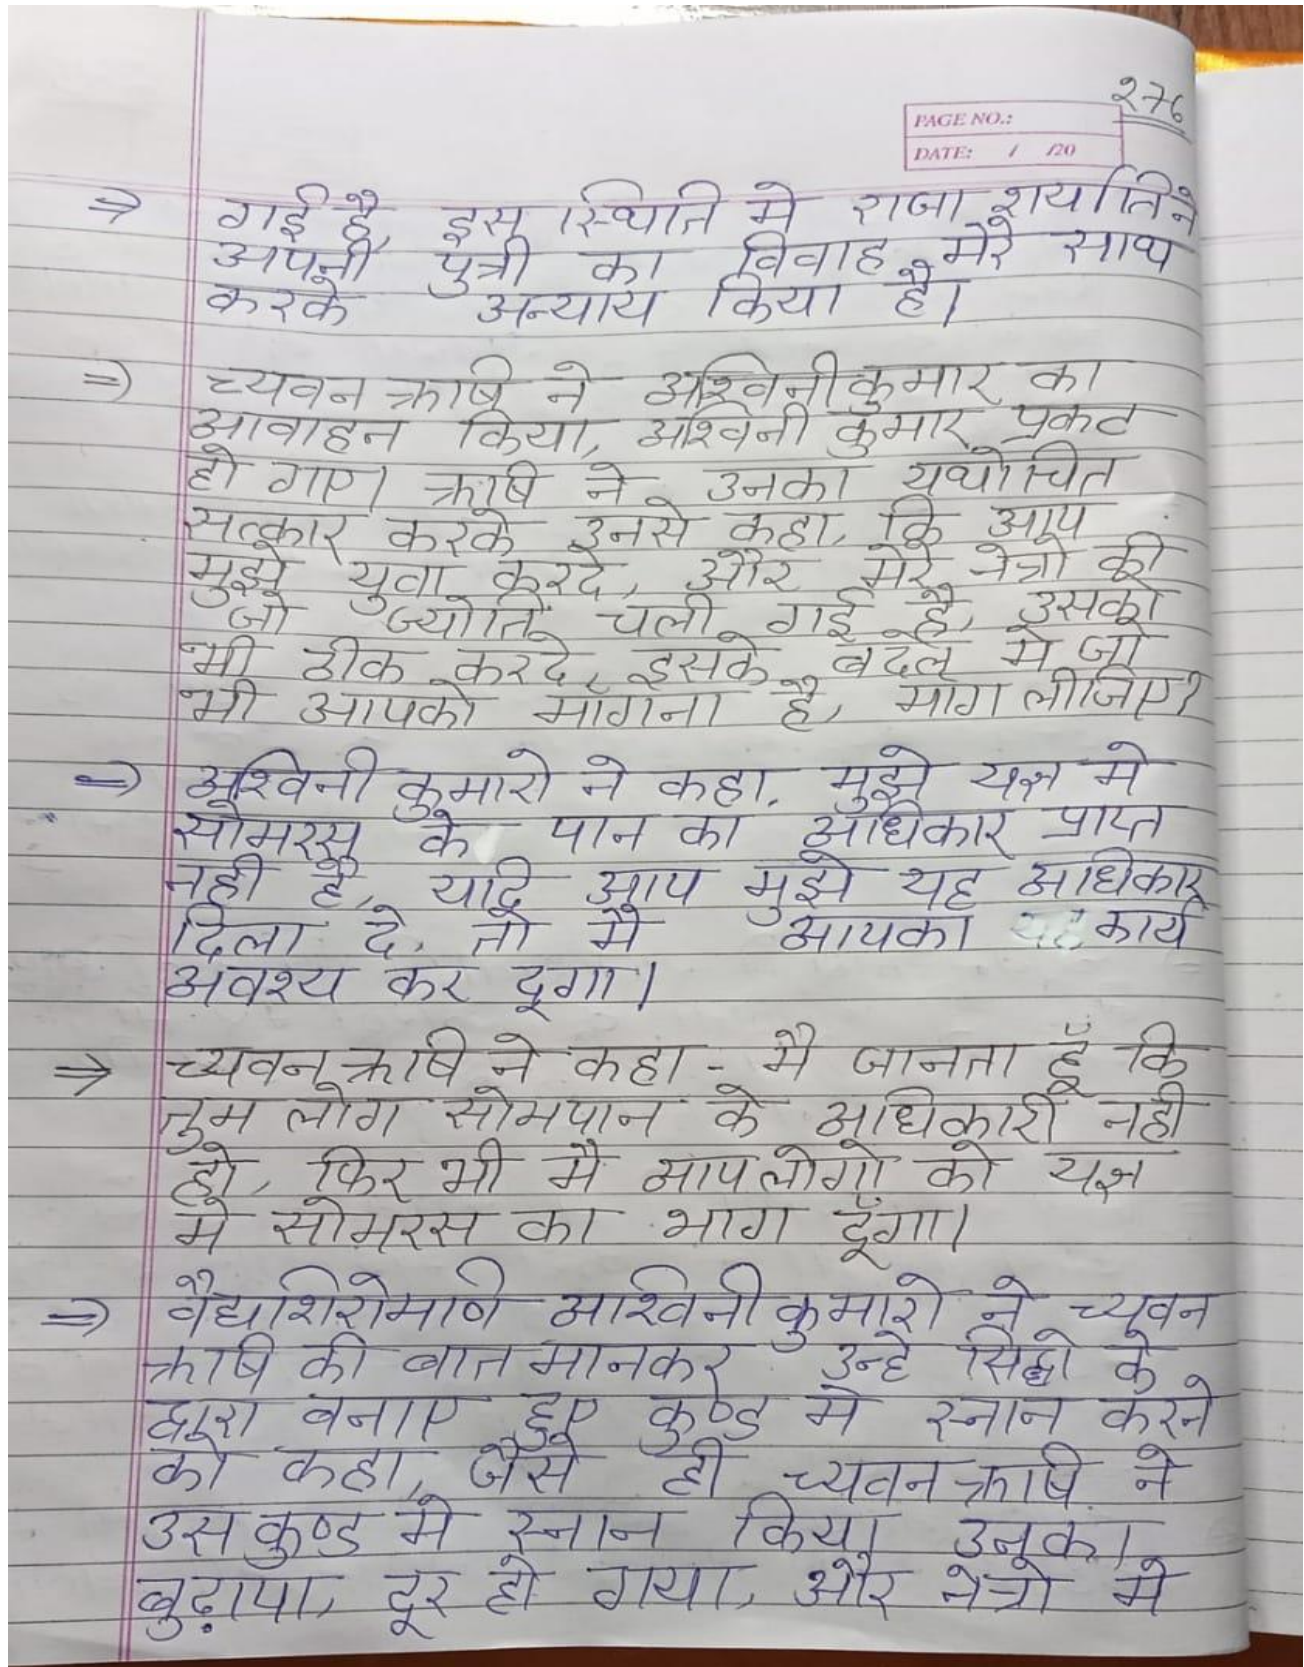 २७६
PAGE NO.:
DATE: / /20
⇒ गई है, इस स्थिति मे राजा शर्याति ने
अपनी पुत्री का विवाह मेरे साथ
करके अन्याय किया है।
⇒ च्यवन ऋषि ने अश्विनी कुमार का
आवाहन किया, अश्विनी कुमार प्रकट
हो गए। ऋषि ने उनका यथोचित
सत्कार करके उनसे कहा, कि आप
मुझे युवा करदे, और मेरे नेत्रो की
जो ज्योति चली गई है, उसको
भी ठीक करदे, इसके बदले मे जो
भी आपको मांगना है, माग लीजिए।
⇒ अश्विनी कुमारो ने कहा, मुझे यज्ञ मे
सोमरस के पान का अधिकार प्राप्त
नही है, यदि आप मुझे यह अधिकार
दिला दे, तो मै आपका यह कार्य
अवश्य कर दूगा।
⇒ च्यवन ऋषि ने कहा - मै जानता हूँ कि
तुम लोग सोमपान के अधिकारी नही
हो, फिर भी मै आप लोगो को यज्ञ
मे सोमरस का भाग दूँगा।
⇒ वैद्यशिरोमणि अश्विनी कुमारो ने च्यवन
ऋषि की बात मानकर उन्हे सिद्धो के
द्वारा बनाए हुए कुण्ड मे स्नान करने
को कहा, जैसे ही च्यवन ऋषि ने
उस कुण्ड मे स्नान किया, उनका
बुढ़ापा, दूर हो गया, और नेत्रो मे